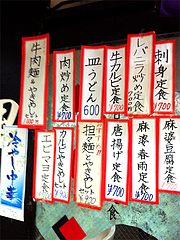 刺身定食
¥700
レバニラ炒め定食
¥700
牛カルビ定食
¥700
皿うどん
600
肉炒め定食
¥700
牛肉麺&やきめしセット
麻婆豆腐定食
麻婆春雨定食
¥700
唐揚げ定食
¥700
担々麺とやきめしセット
カルビとやきめしセット
エビマヨ定食
¥700
冷やし中華